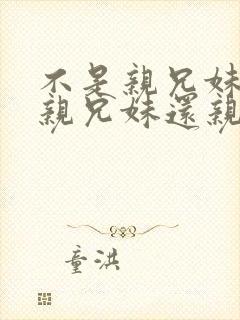 不是親兄妹
親兄妹還親
童洪